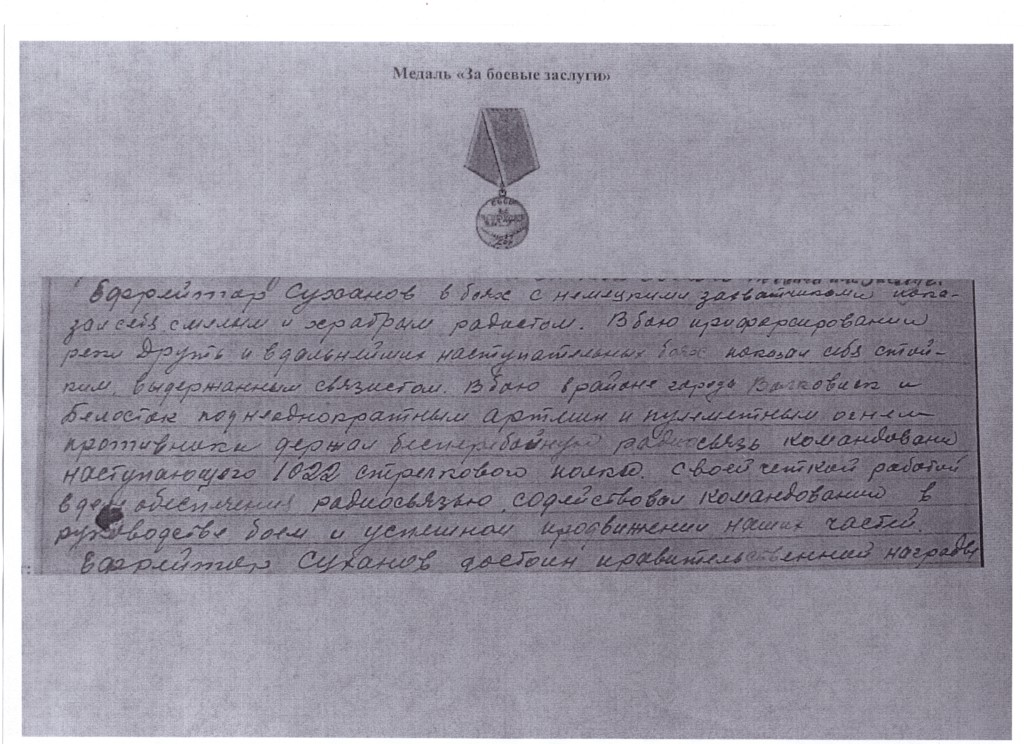 Медаль «За боевые заслуги»
СССР
Ефрейтор Суханов в боях с немецкими захватчиками пока-
зал себя смелым и храбрым радистом. В бою при форсировании
реки Друть и в дальнейших наступательных боях показал себя стой-
ким, выдержанным связистом. В бою в районе города Волковыск и
Белосток под неоднократным артмин и пулеметным огнем
противника держал бесперебойную радиосвязь командовани
наступающего 1022 стрелкового полка. Своей четкой работой
в деле обеспечения радиосвязью, содействовал командований в
руководстве боем и успешном продвижении наших частей.
Ефрейтор Суханов достоин правительственной награды